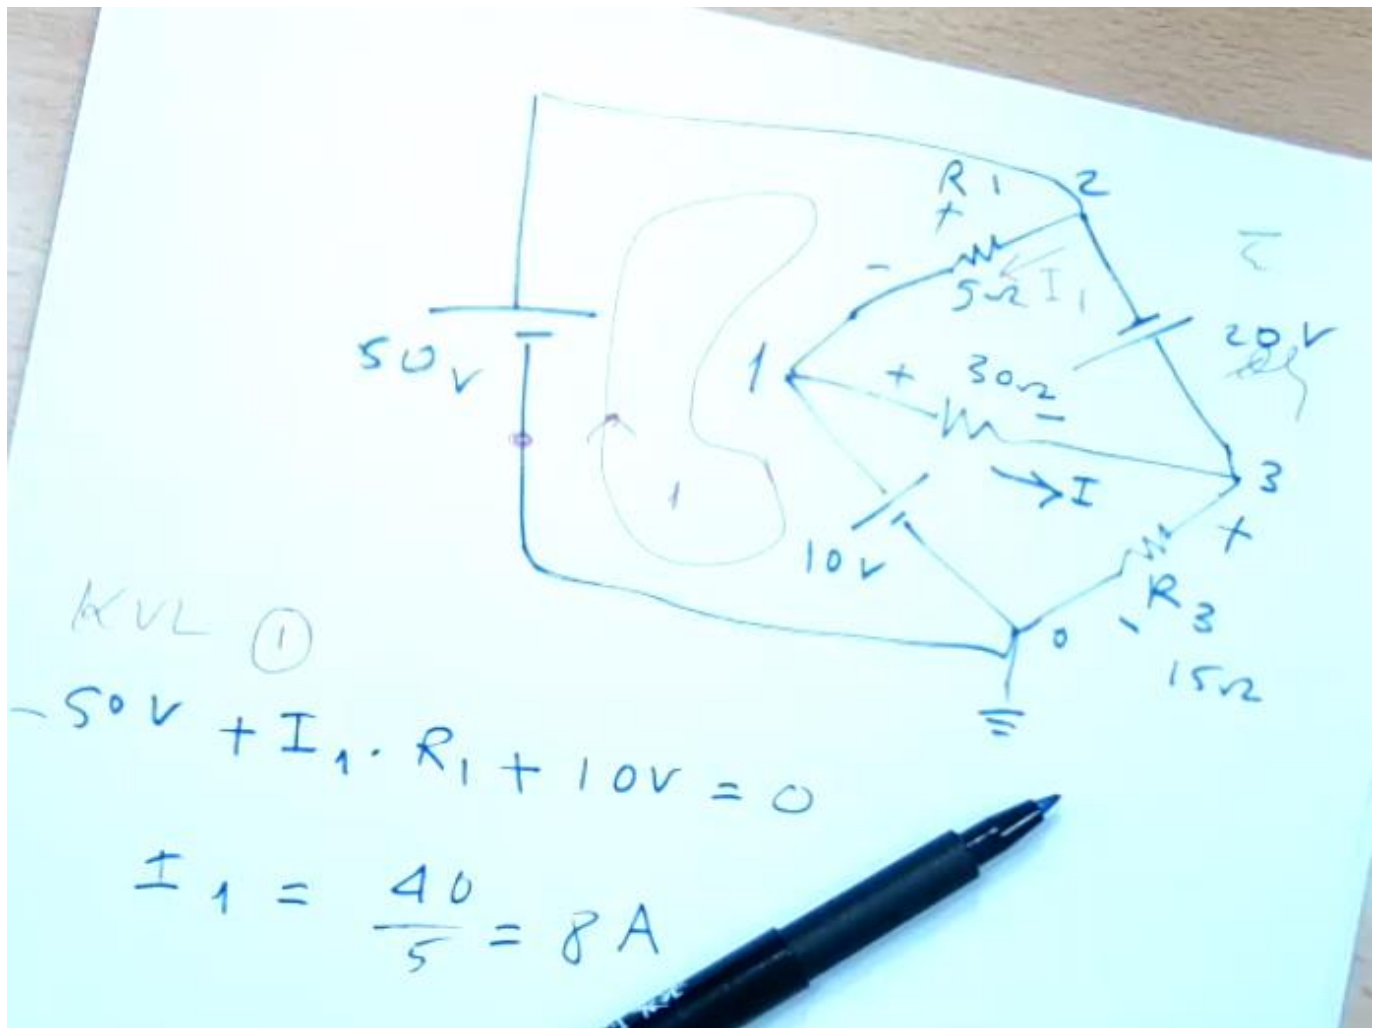 R1 2
+
-
5Ω I1
20V
50V
1
+ 30Ω -
3
→ I
+
1
10V
R3
0
15Ω
KVL ①
-50V + I1 · R1 + 10V = 0
I1 = 40/5 = 8A